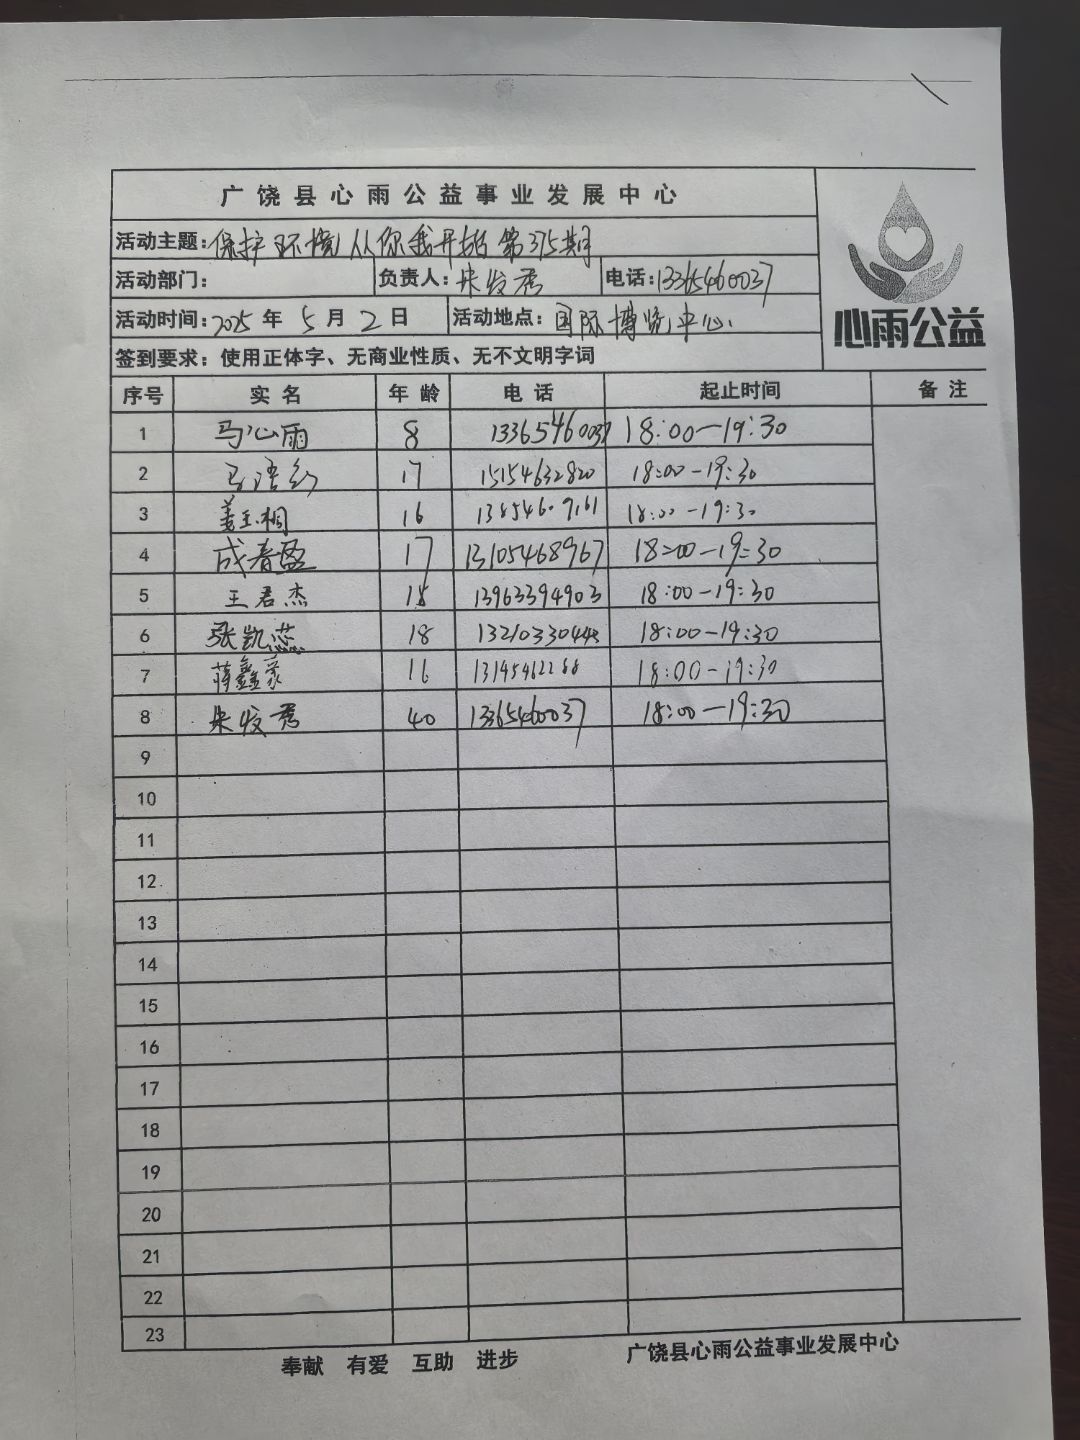 广饶县心雨公益事业发展中心
活动主题:保护环境从你我开始第375期
活动部门: 负责人:朱发秀 电话:13365460037
活动时间:2025年5月2日 活动地点:国际博览中心
心雨公益
签到要求:使用正体字、无商业性质、无不文明字词
序号 实名 年龄 电话 起止时间 备注
1 马心雨 8 13365460037 18:00-19:30
2 17 15154632820 18:00-19:30
3 姜玉桐 16 18:00-19:30
4 成春盈 17 13105468967 18:00-19:30
5 王君杰 15 13963394903 18:00-19:30
6 张凯蕊 18 13210330443 18:00-19:30
7 蒋鑫豪 16 18:00-19:30
8 朱发秀 40 13365460037 18:00-19:30
9
10
11
12
13
14
15
16
17
18
19
20
21
22
23
奉献 有爱 互助 进步 广饶县心雨公益事业发展中心